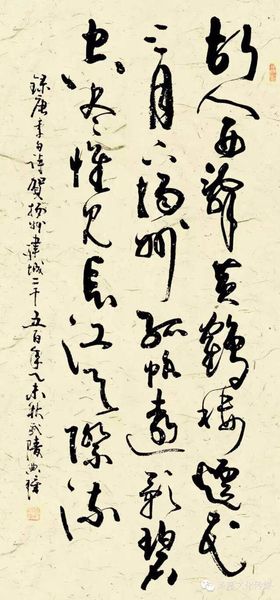 故人西辭黄鶴樓煙花
三月下揚州孤帆遠影碧
空盡惟見長江天際流
録唐李白詩賀揚州建城二千五百年乙未秋